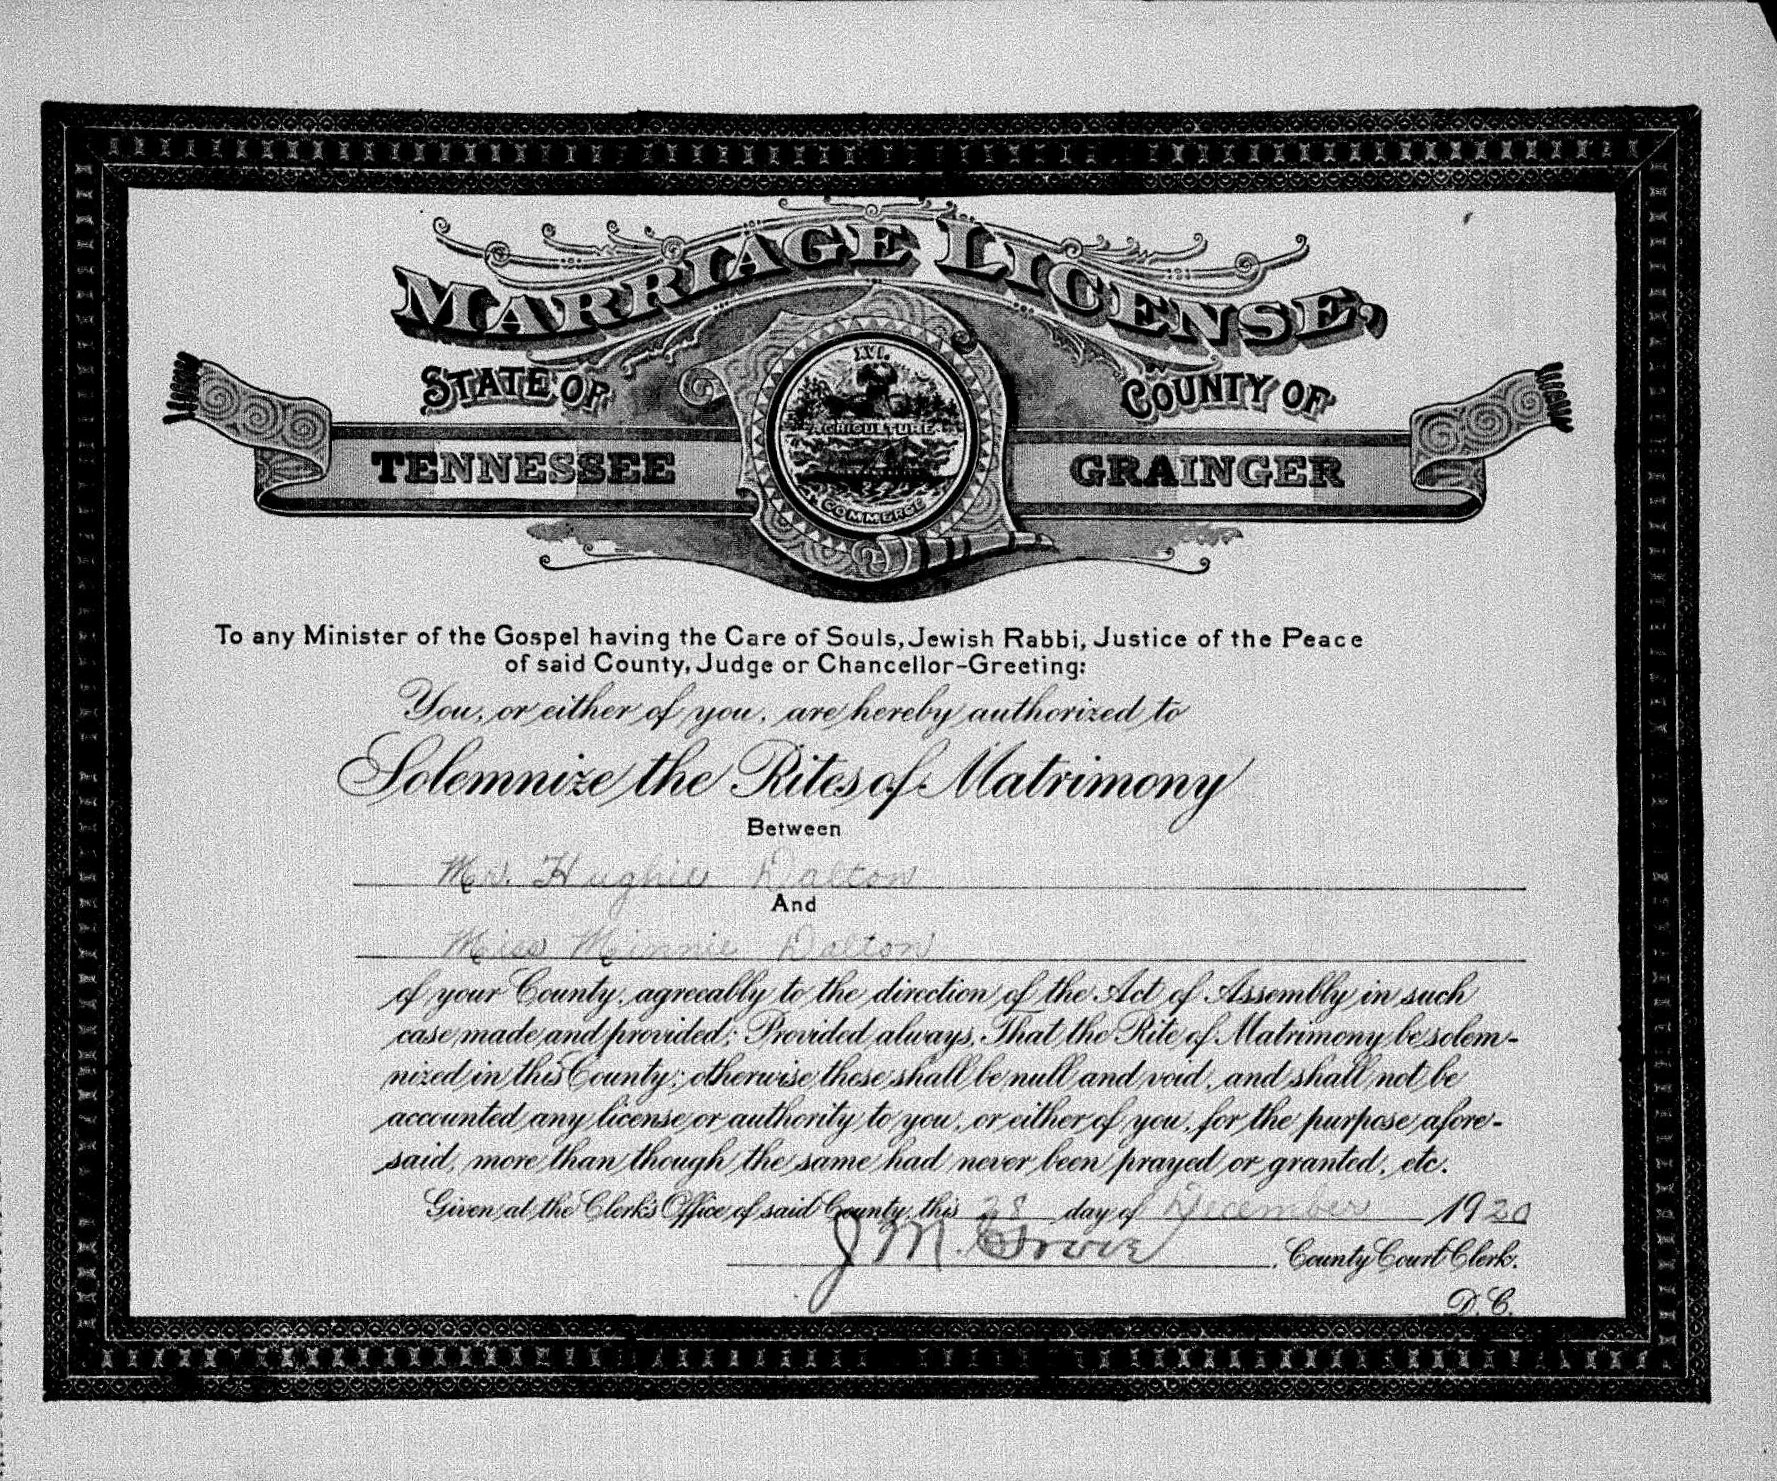 MARRIAGE LICENSE,
STATE OF
COUNTY OF
XVI.
AGRICULTURE
COMMERCE
TENNESSEE
GRAINGER
To any Minister of the Gospel having the Care of Souls, Jewish Rabbi, Justice of the Peace
of said County, Judge or Chancellor-Greeting:
You, or either of you, are hereby authorized to
Solemnize the Rites of Matrimony
Between
Mr. Hughie Dalton
And
Miss Minnie Dalton
of your County, agreeably to the direction of the Act of Assembly in such
case made and provided; Provided always, That the Rite of Matrimony be solem-
nized in this County; otherwise these shall be null and void, and shall not be
accounted any license or authority to you, or either of you, for the purpose afore-
said, more than though the same had never been prayed or granted, etc.
Given at the Clerk's Office of said County, this 28 day of December 1920
J M. Grove, County Court Clerk.
D. C.